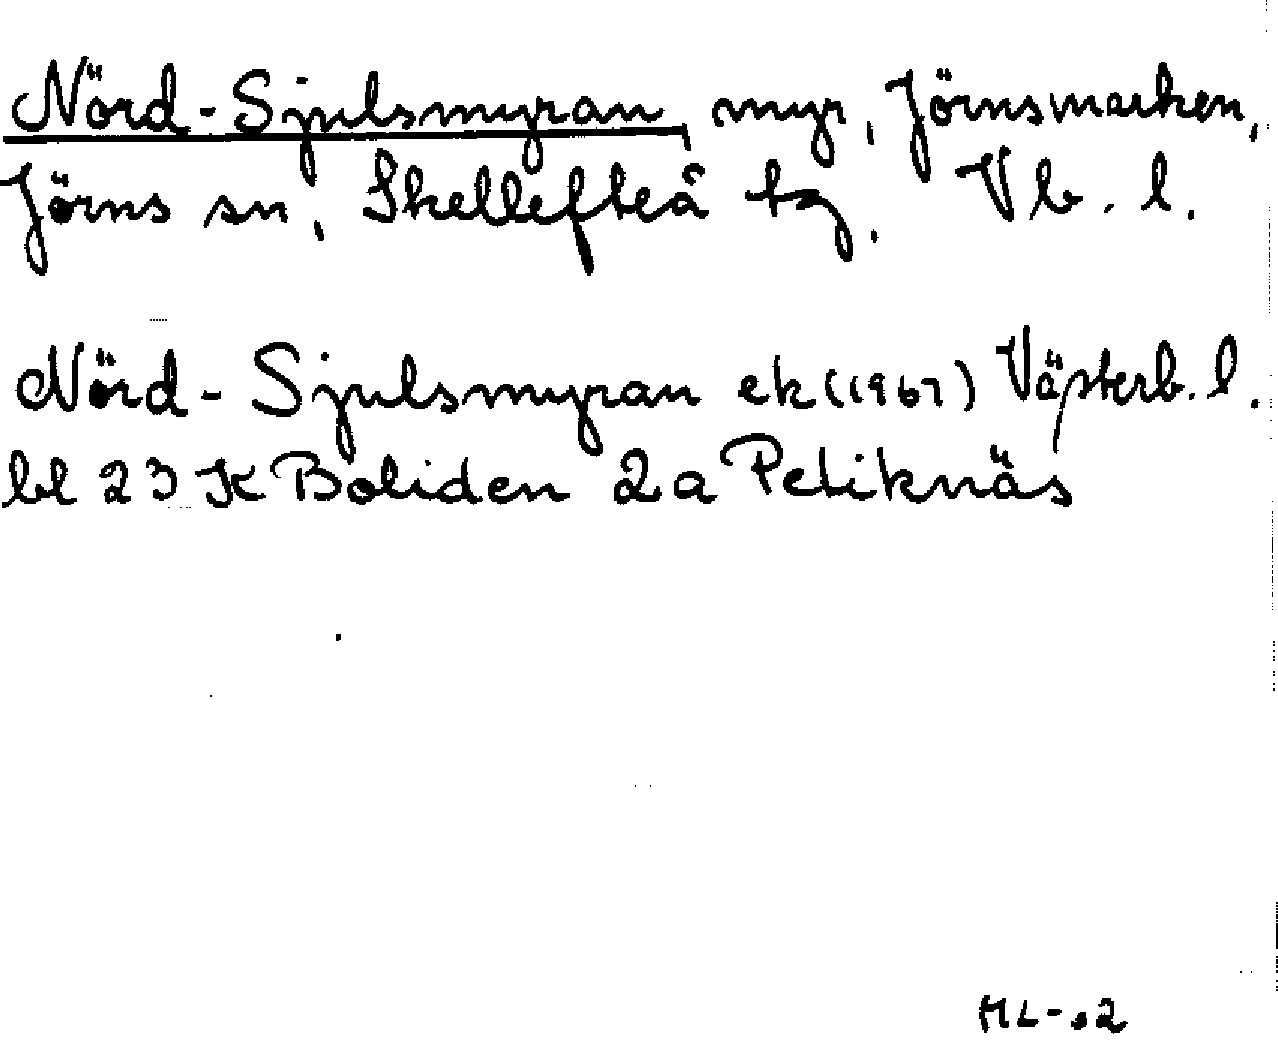 Nörd-Sjulsmyran, myr, Jörnsmarken,
Jörns sn, Skellefteå tg. Vb. l.
Nörd-Sjulsmyran ek (1967) Västerb. l.
bl 23 K Boliden 2a Petiknäs